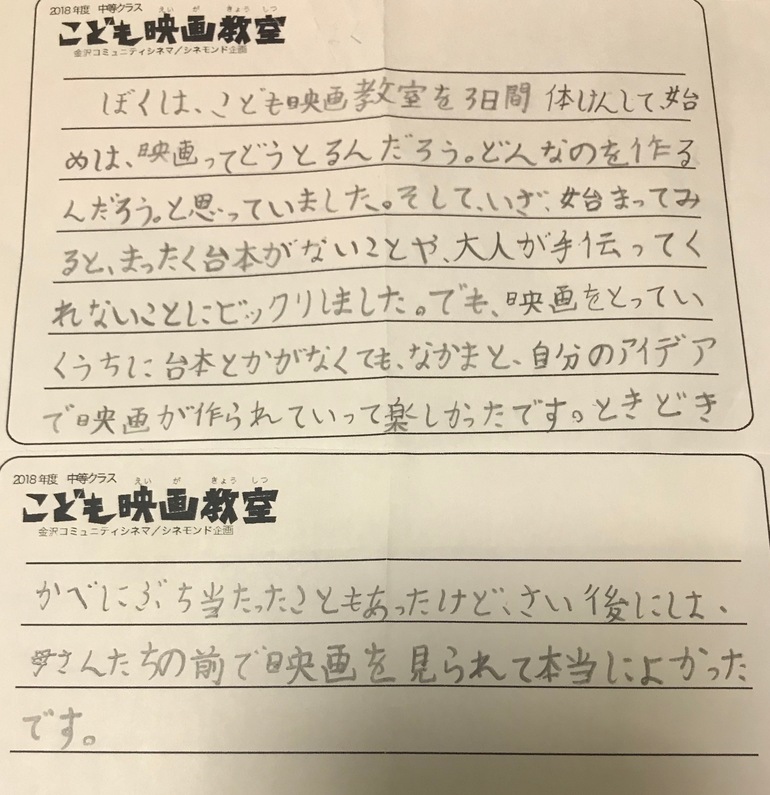 2018年度 中等クラス
えい が きょう しつ
こども映画教室
金沢コミュニティシネマ／シネモンド企画
ぼくは、こども映画教室を3日間 体けんして、始
めは、映画ってどうとるんだろう。どんなのを作る
んだろう。と思っていました。そして、いざ、始まってみ
ると、まったく台本がないことや、大人が手伝ってく
れないことにビックリしました。でも、映画をとってい
くうちに台本とかがなくても、なかまと、自分のアイデア
で映画が作られていって楽しかったです。ときどき
2018年度 中等クラス
えい が きょう しつ
こども映画教室
金沢コミュニティシネマ／シネモンド企画
かべにぶち当たったこともあったけど、さい後には、
さんたちの前で映画を見られて本当によかった
です。